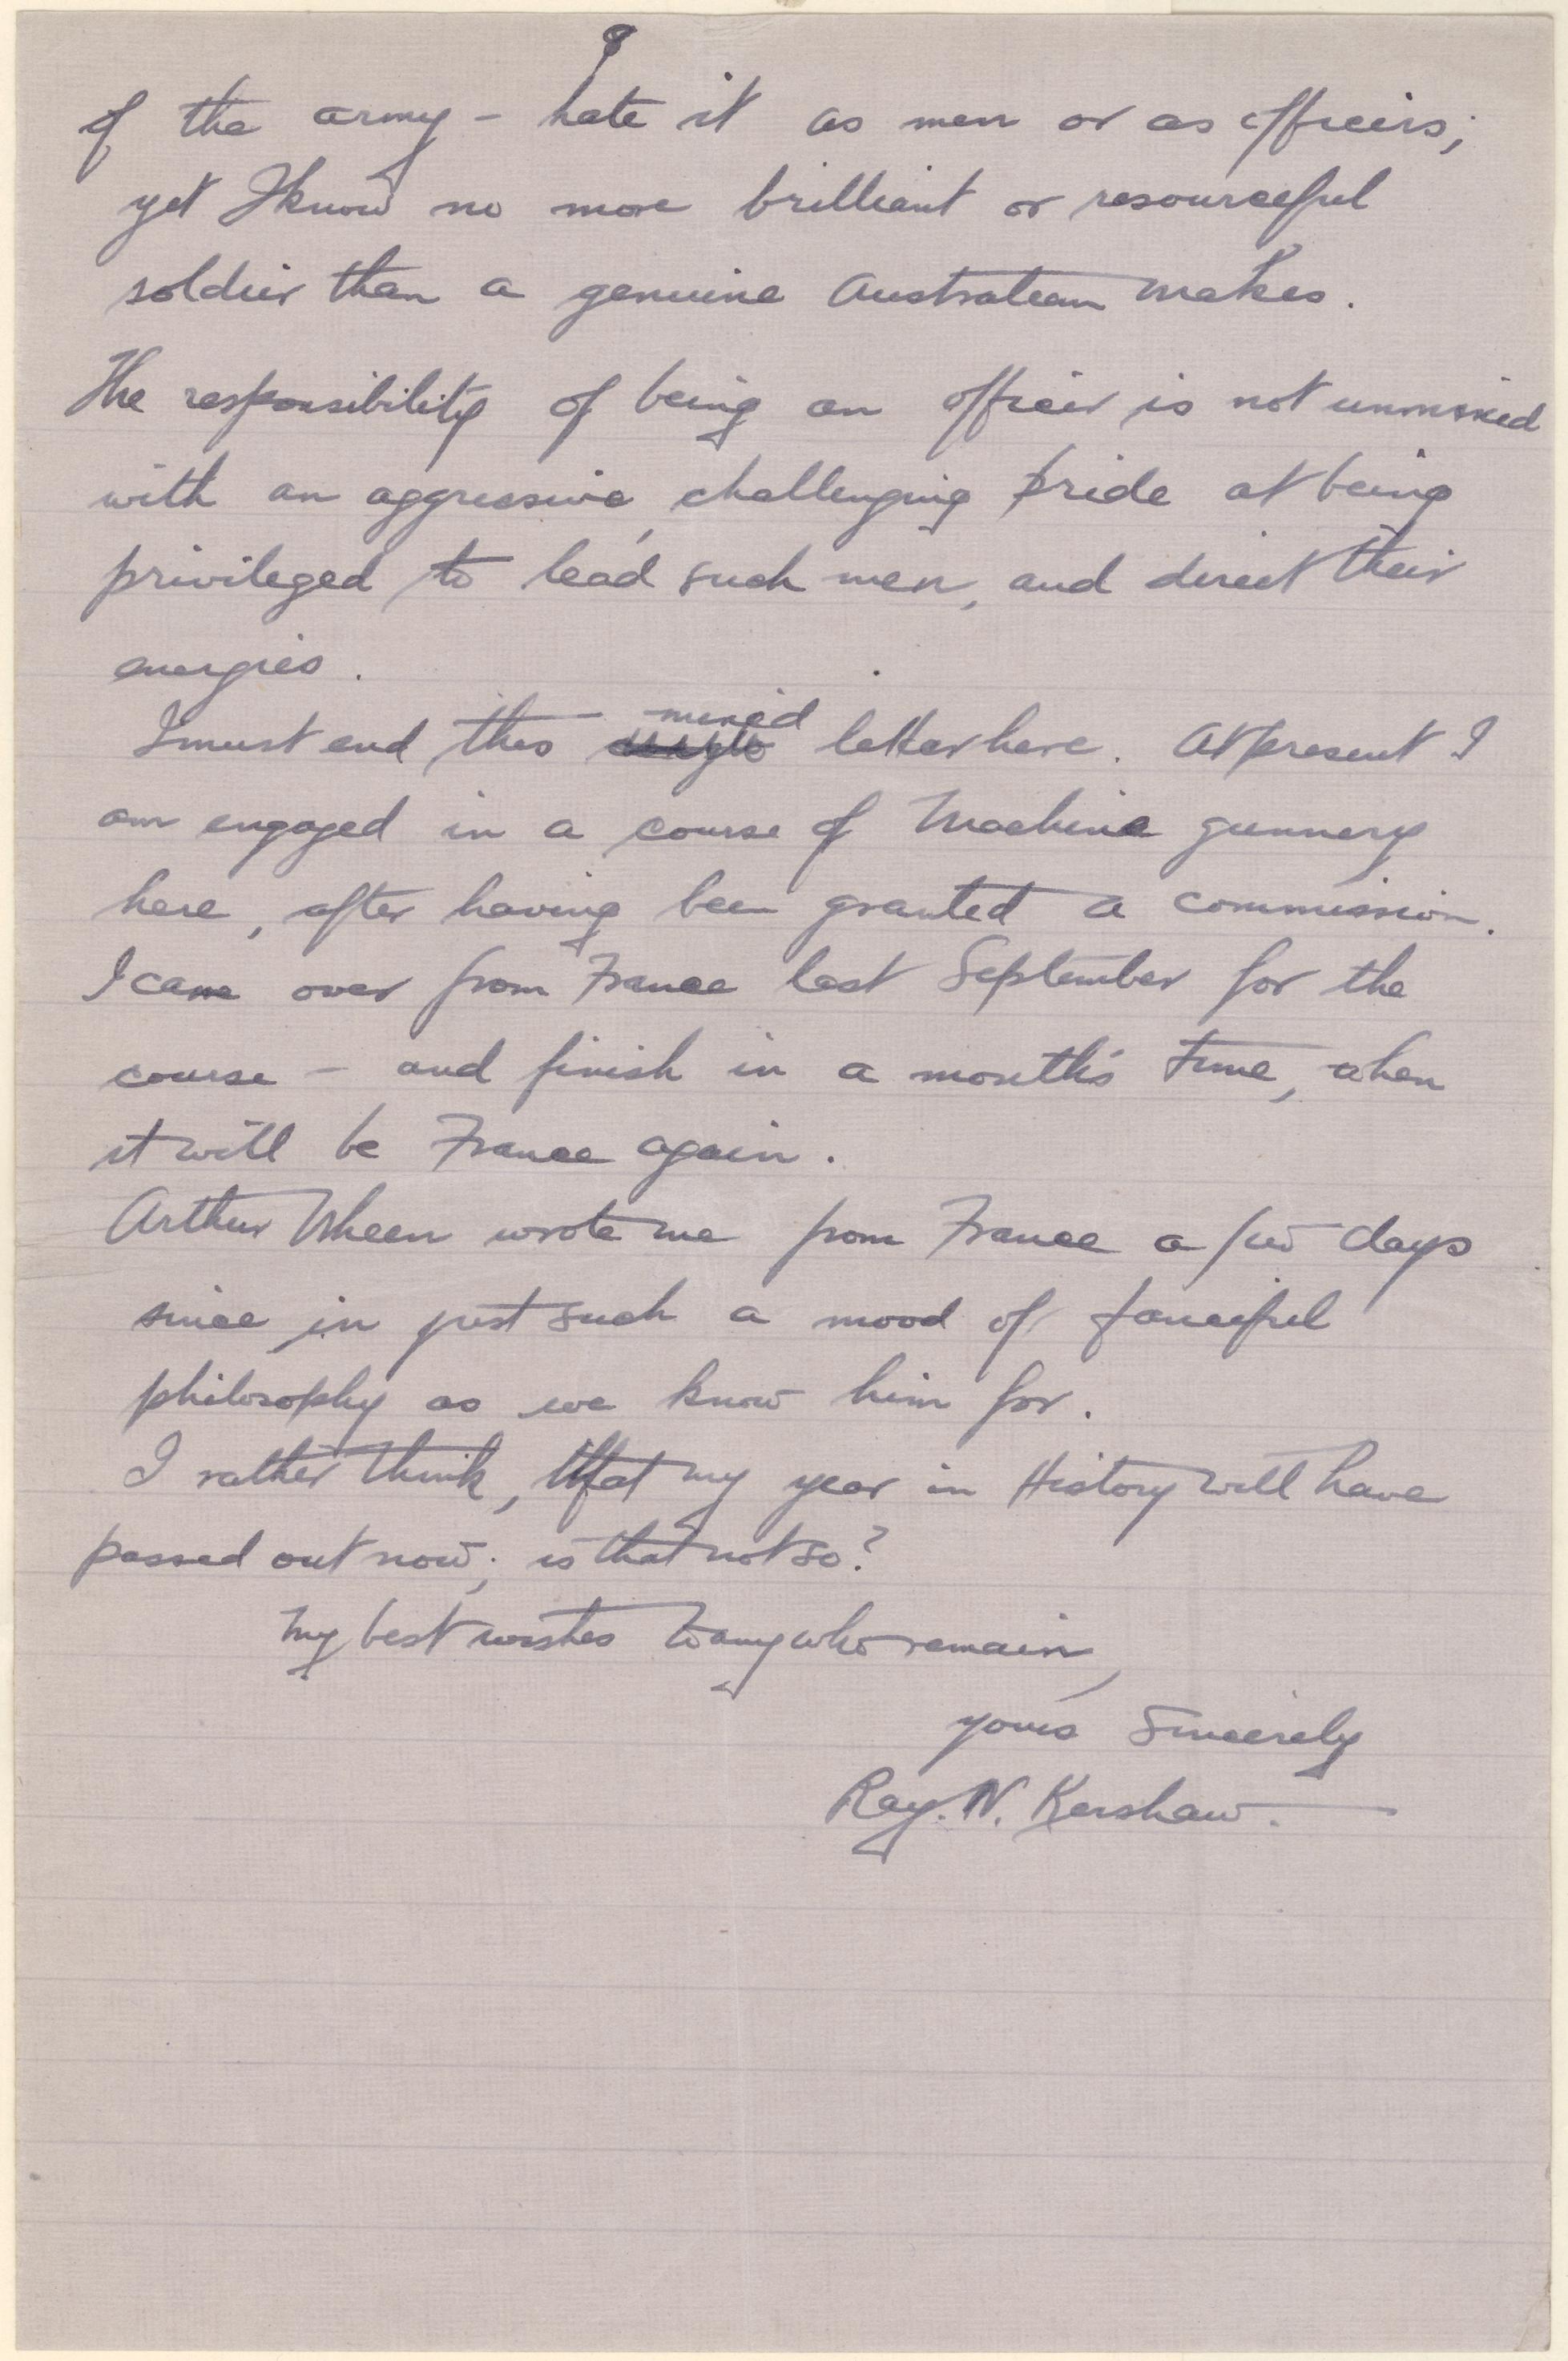 8
of the army – hate it as men or as officers;
yet I know no more brilliant or resourceful
soldier than a genuine Australian makes.
The responsibility of being an officer is not unmixed
with an aggressive, challenging pride at being
privileged to lead such men, and direct their
energies.
mixed
I must end this letter here. At present I
am engaged in a course of Machine gunnery
here, after having been granted a commission.
I came over from France last September for the
course – and finish in a month's time, when
it will be France again.
Arthur Wheen wrote me from France a few days
since in just such a mood of fanciful
philosophy as we know him for.
I rather think, that my year in History will have
passed out now; is that not so?
My best wishes to any who remain,
yours Sincerely
Ray. N. Kershaw.